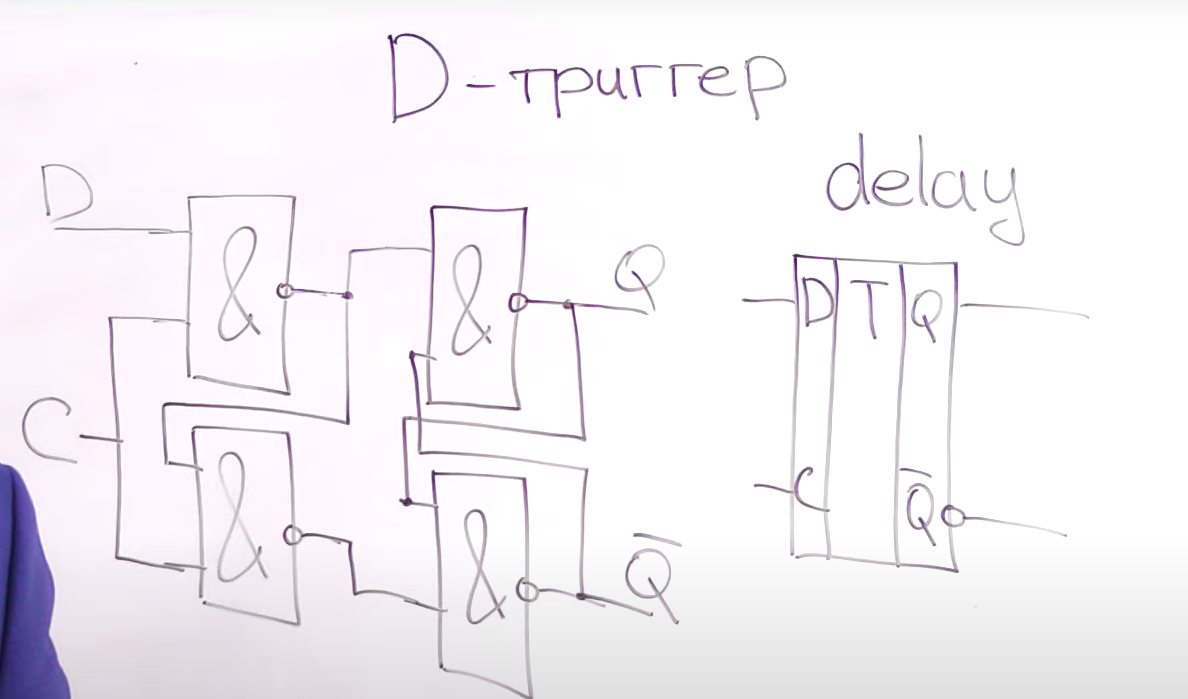 D-триггер
delay
D
&
&
Q
D T Q
C
&
&
Q̅
C
Q̅